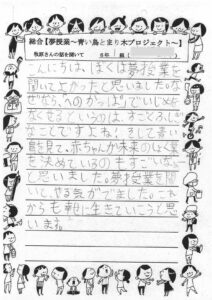 総合【夢授業～青い鳥とまり木プロジェクト～】
牧原さんの話を聞いて　6年　組
こんにちは、ぼくは夢授業を
聞いてよかったと思いました。な
ぜなら、への
なくせるというのは、すごくふし
なことですよね！そして青い
鳥を見て、赤ちゃんが未来のしょく業
を決めているのもすごいな
と思いました。夢授業を聞
いてやる気がでました。これ
からも軽に生きていこうと思
います。